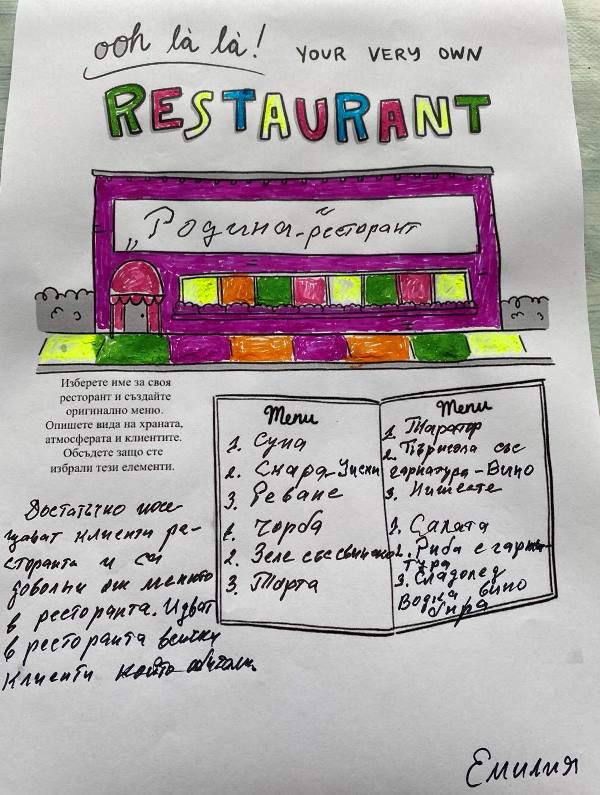 ooh là là! YOUR VERY OWN
RESTAURANT
„Родина-ресторант
Изберете име за своя
ресторант и създайте
оригинално меню.
Опишете вида на храната,
атмосферата и клиентите.
Обсъдете защо сте
избрали тези елементи.
Достатъчно посе-
щават клиенти ре-
сторанта и са
доволни от менюто
в ресторанта. Идват
в ресторанта всички
клиенти които
Menu
1. Супа
2. Скара-
3. Реване
1. Чорба
2. Зеле със свинско
3. Торта
Menu
1. Таратор
2. Пържола със
гарнитура-Вино
3. Нишесте
1. Салата
2. Риба с гарни-
тура
3. Сладолед
Водка вино
бира
Емилия